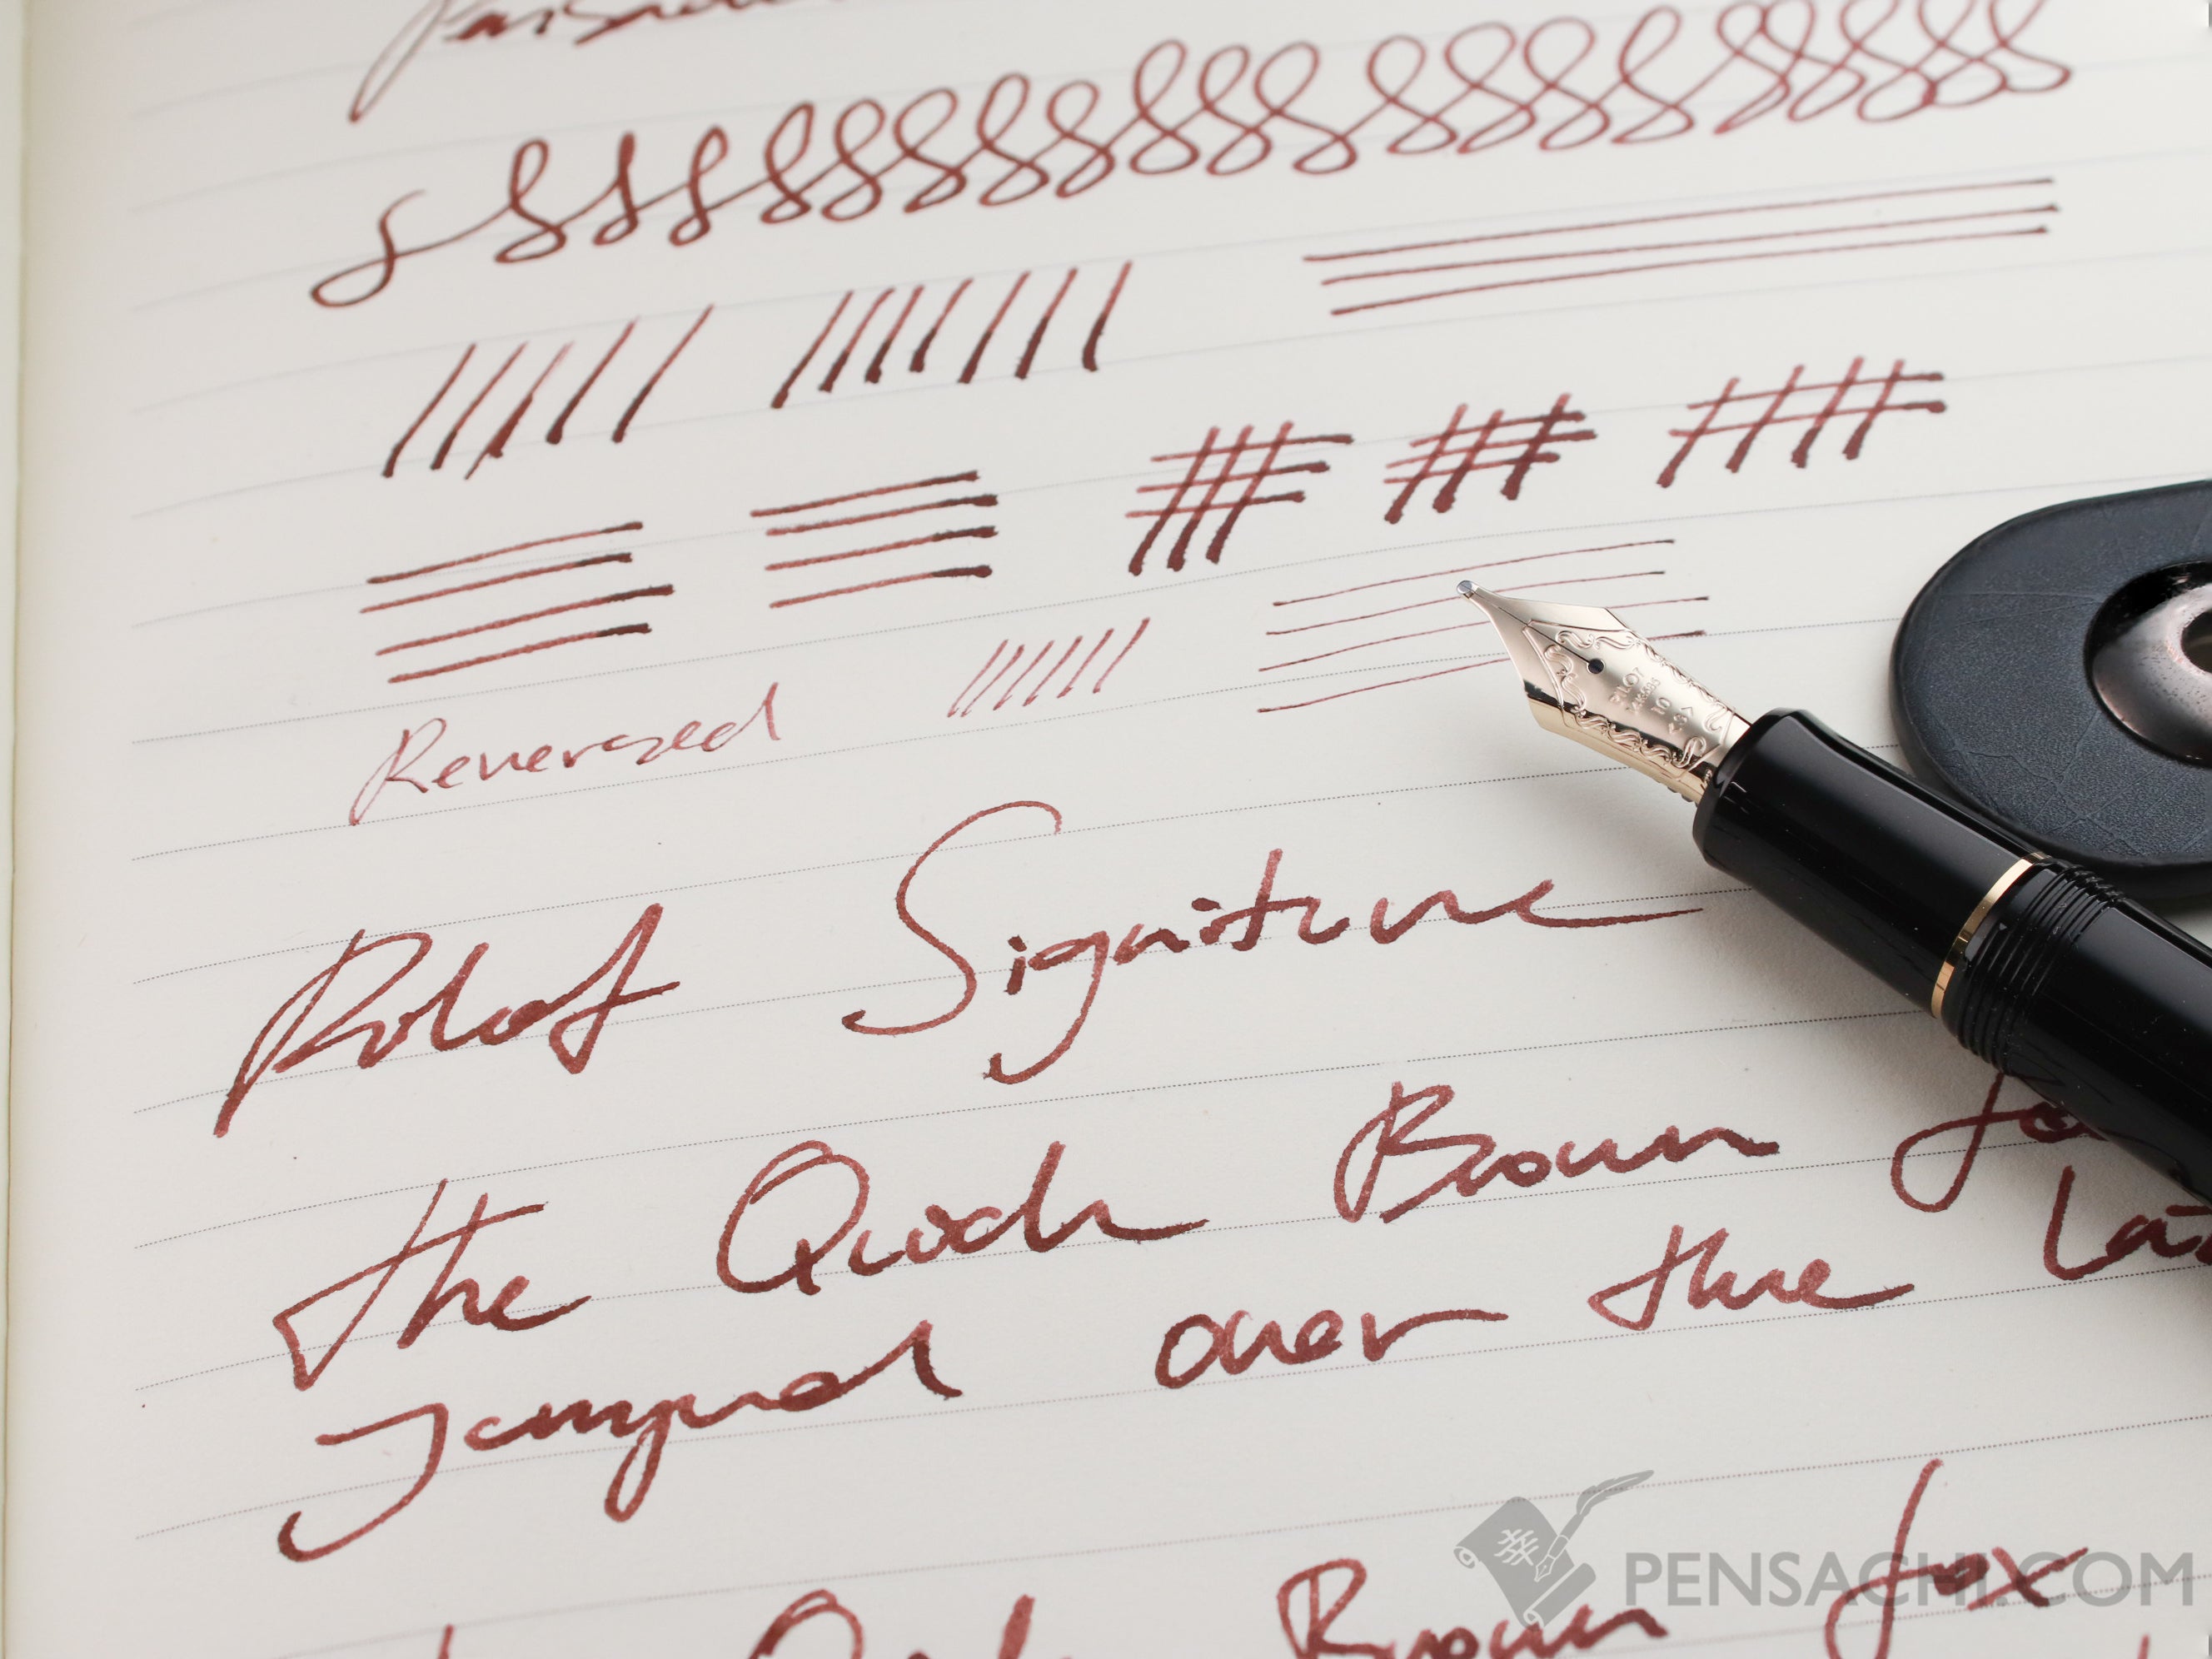 Reversed
Pilot Signiture
the Quick Brown fox
Jumped over the laz
Quick Brown fox
PILOT
10
幸
PENSACHI.COM